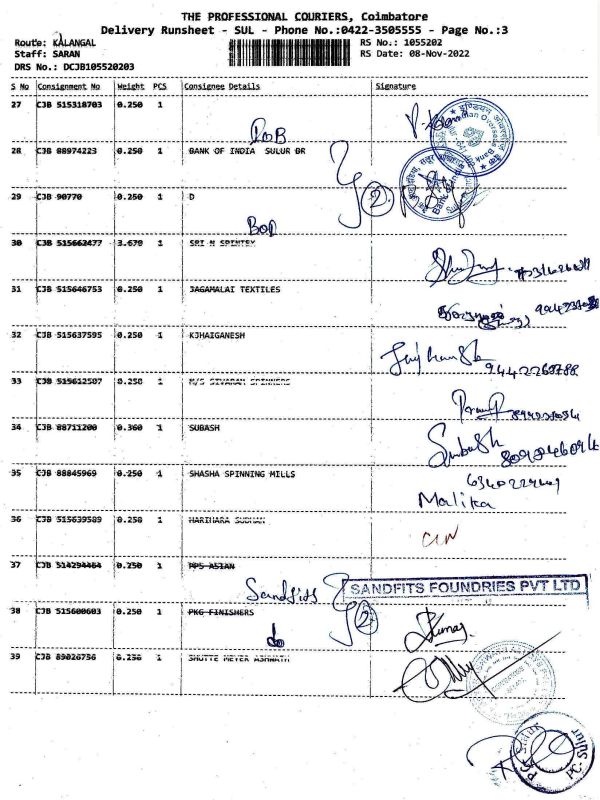 THE PROFESSIONAL COURIERS, Coimbatore
Delivery Runsheet - SUL - Phone No.:0422-3505555 - Page No.:3
Route: KALANGAL
RS No.: 1055202
Staff: SARAN
RS Date: 08-Nov-2022
DRS No.: DCJB105520203
S No Consignment No Weight PCS Consignee Details Signature
27 CJB 515318703 0.250 1
BOB
28 CJB 88974223 0.250 1 BANK OF INDIA SULUR BR
2
29 CJB 90770 0.250 1 D
BOD
30 CJB 515662477 3.670 1 SRI N SPINTEX
31 CJB 515646753 0.250 1 JAGAMALAI TEXTILES
32 CJB 515637595 0.250 1 KJHAIGANESH
9442269788
33 CJB 515612507 0.250 1 M/S SIVARAM SPINNERS
34 CJB 88711200 0.360 1 SUBASH
Subash
35 CJB 88845969 0.250 1 SHASHA SPINNING MILLS
Malika
36 CJB 515639589 0.250 1 HARIHARA SUDHAN
37 CJB 514294464 0.250 1 PPS ASIAN
Sandfits
SANDFITS FOUNDRIES PVT LTD
38 CJB 515600603 0.250 1 PKG FINISHERS
2
do
Kumar
39 CJB 89026756 0.250 1
PC-Sulur